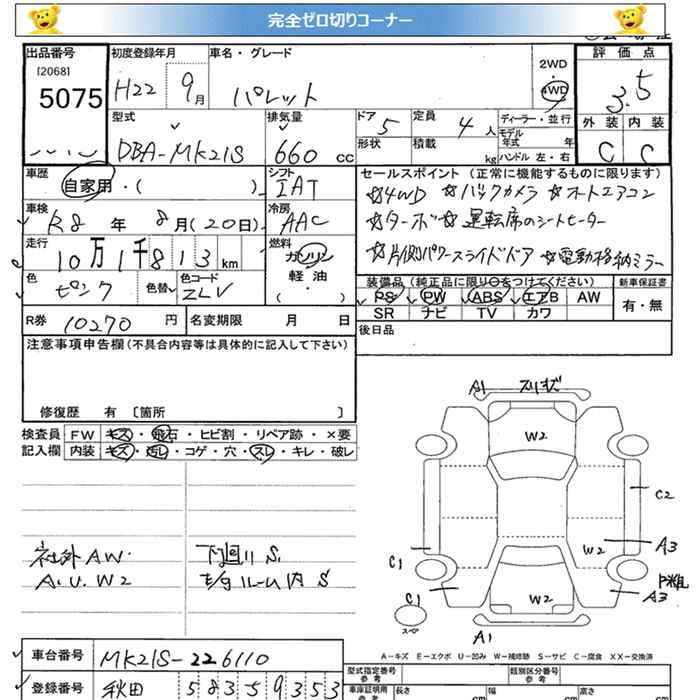 完全ゼロ切りコーナー
出品番号
[2068]
5075
初度登録年月
H22 9月
車名・グレード
パレット
2WD
4WD
評価点
3.5
外装 内装
C C
型式
DBA-MK21S
排気量
660 cc
ドア 5
形状
定員 4人
積載 kg
ディーラー・並行
モデル年式 年式
ハンドル 左・右
車歴
自家用・( )
シフト
IAT
セールスポイント(正常に機能するものに限ります)
☆4WD ☆バックカメラ ☆オートエアコン
☆ターボ ☆運転席のシートヒーター
☆片側パワースライドドア ☆電動格納ミラー
車検
R8年 8月(20日)
冷房
AAC
走行
10万1千813km
燃料
ガソリン
軽油
( ・ )
色
ピンク
色替
色コード
ZLV
装備品(純正品に限り○をつけてください)
新車保証書
PS PW ABS エアB AW
有・無
SR ナビ TV カワ
R券 10270円
名変期限 月 日
後日品
注意事項申告欄(不具合内容等は具体的に記入して下さい)
修復歴 有 〔箇所 〕
検査員 FW キズ・飛石・ヒビ割・リペア跡・×要
記入欄 内装 キズ・汚レ・コゲ・穴・スレ・キレ・破レ
社外AW.
A.U.W2
下廻りS.
モグルーム内S
A1
スリキズ
W2
C2
W2
A3
C1
C1
W2
A3
スペア
A1
A-キズ E-エクボ U-凹み W-補修跡 S-サビ C-腐食 XX-交換済
車台番号 MK21S-226110
登録番号 秋田 583 59353
型式指定番号
参考
類別区分番号
参考
車庫証明用
参考
長さ
幅
高さ